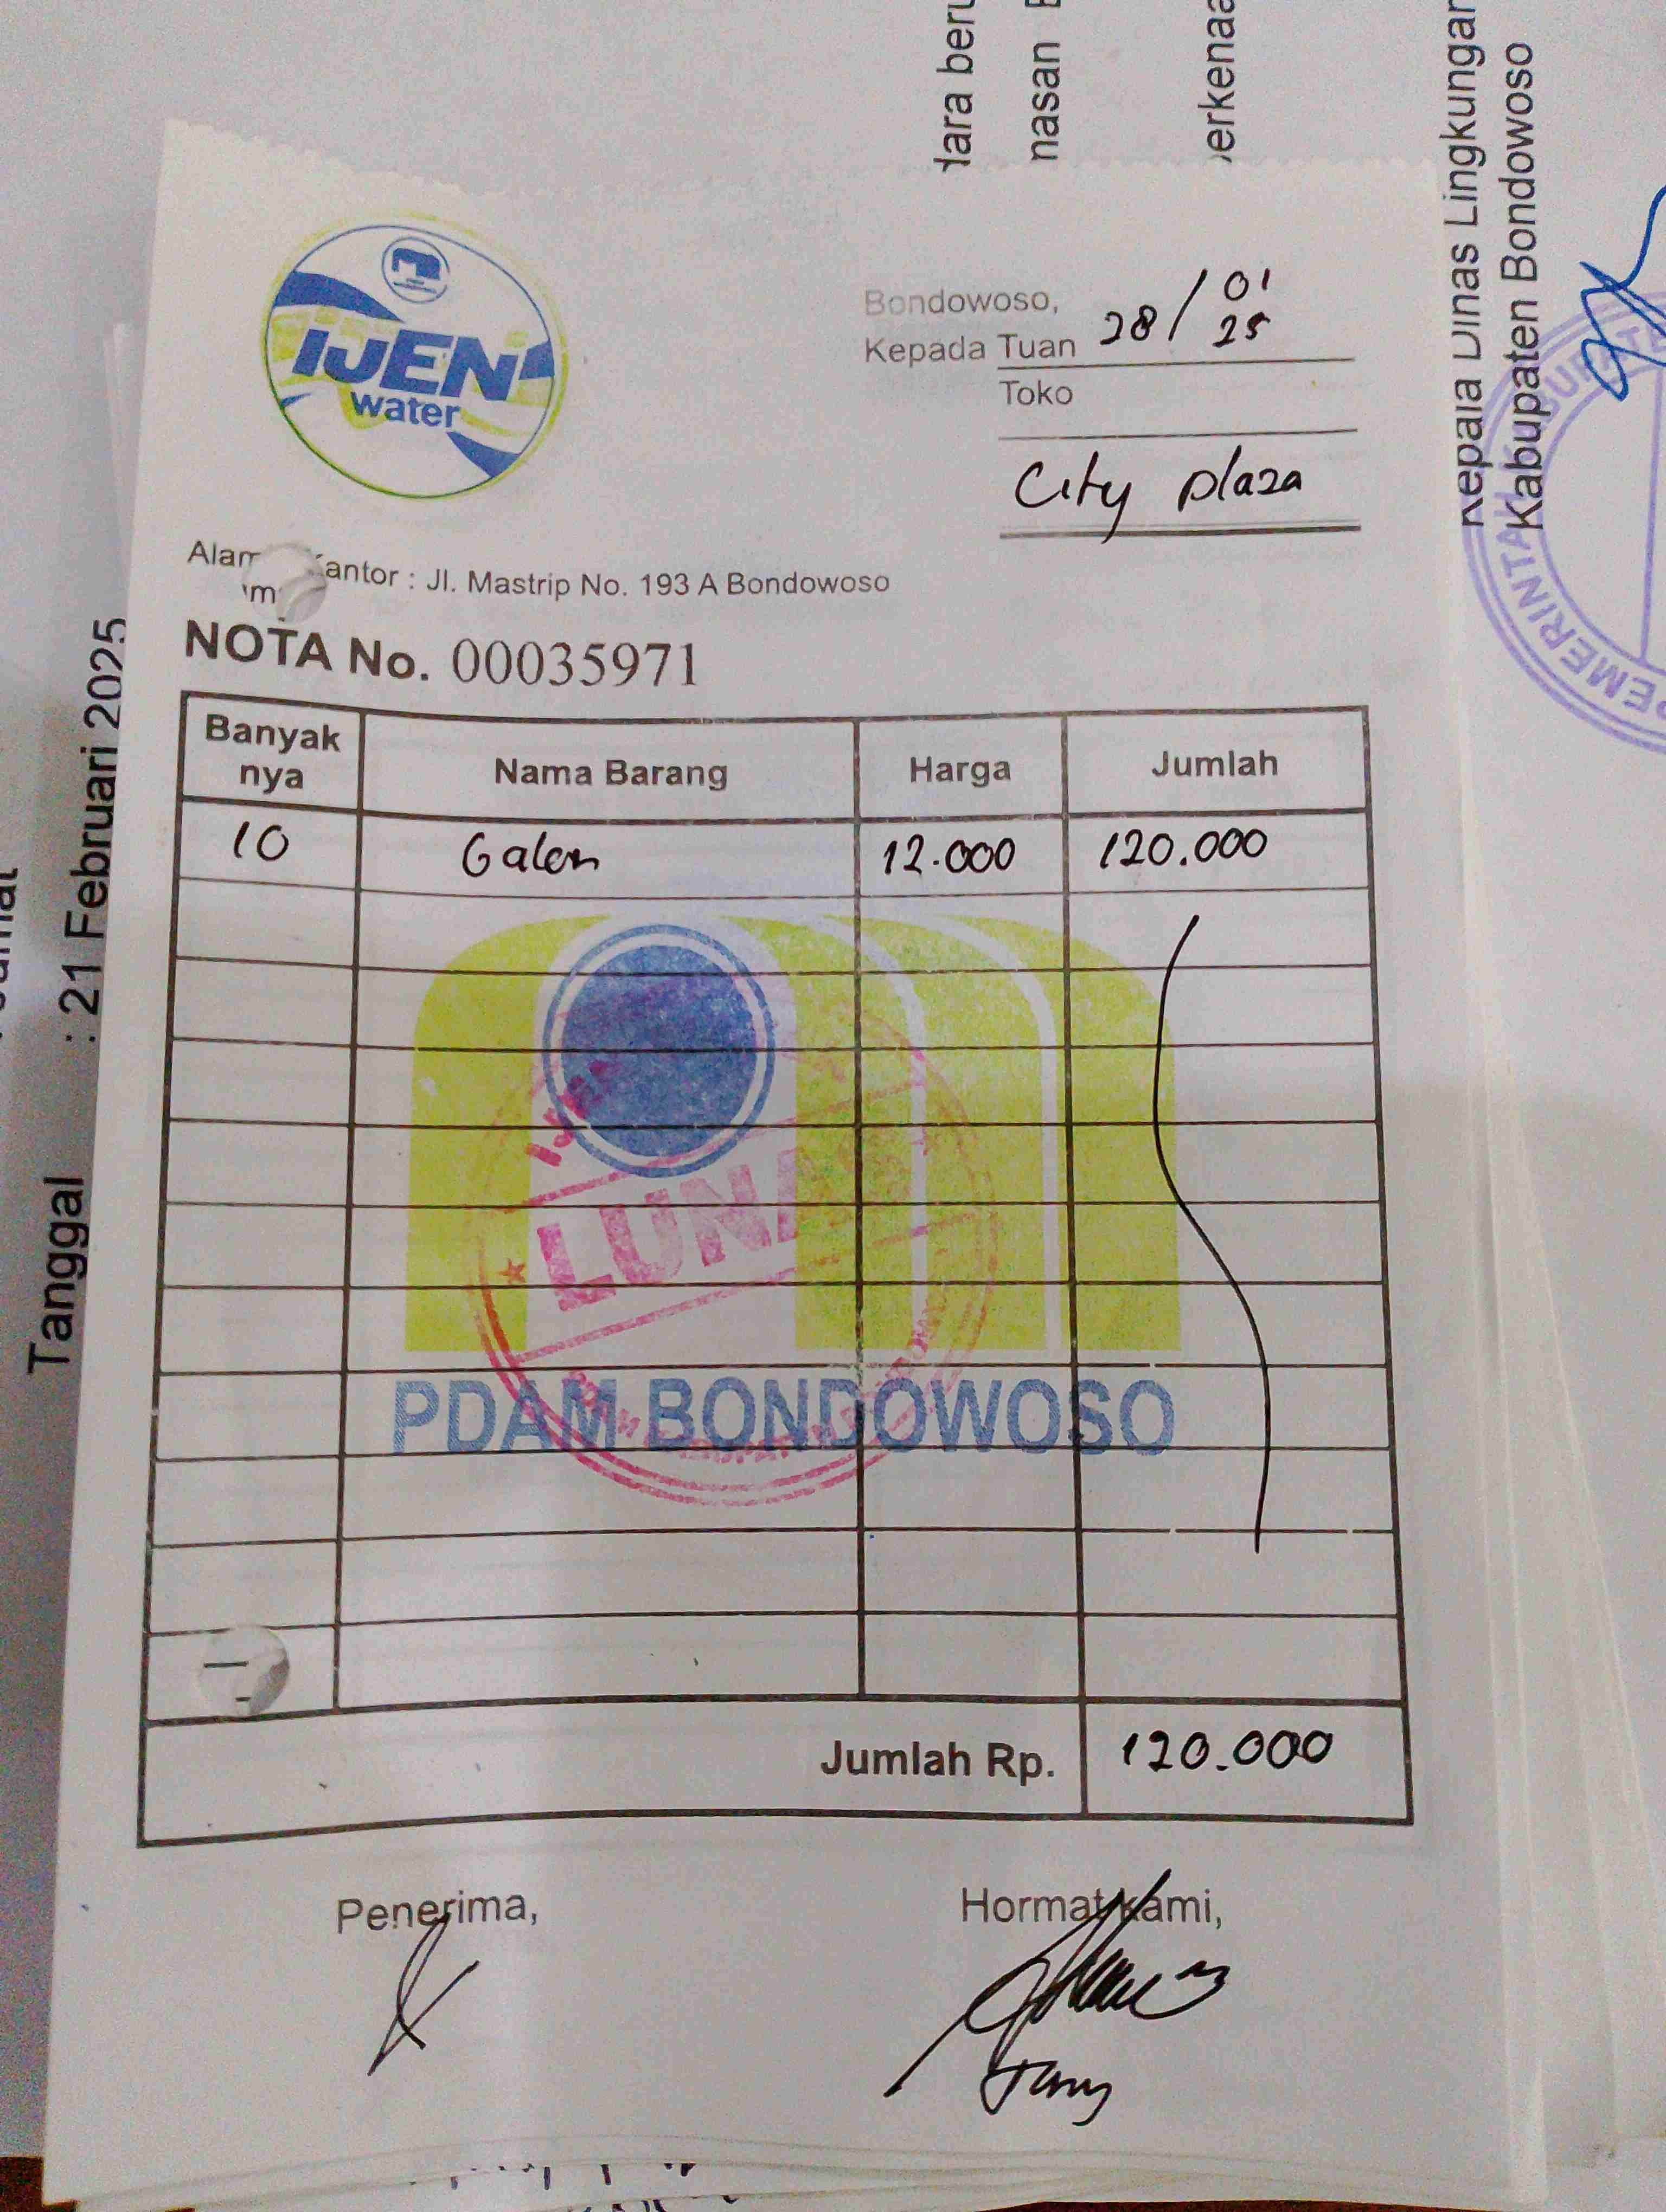 IJEN
water
Bondowoso, 28/01
25
Kepada Tuan
Toko
City plaza
antor : Jl. Mastrip No. 193 A Bondowoso
NOTA No. 00035971
Banyak nya Nama Barang Harga Jumlah
10 Galon 12.000 120.000
LUNAS
PDAM BONDOWOSO
Jumlah Rp. 120.000
Penerima, Hormat kami,
Tanggal : 21 Februari 2025
Kepala Dinas Lingkungan
Kabupaten Bondowoso
PEMERINTAH